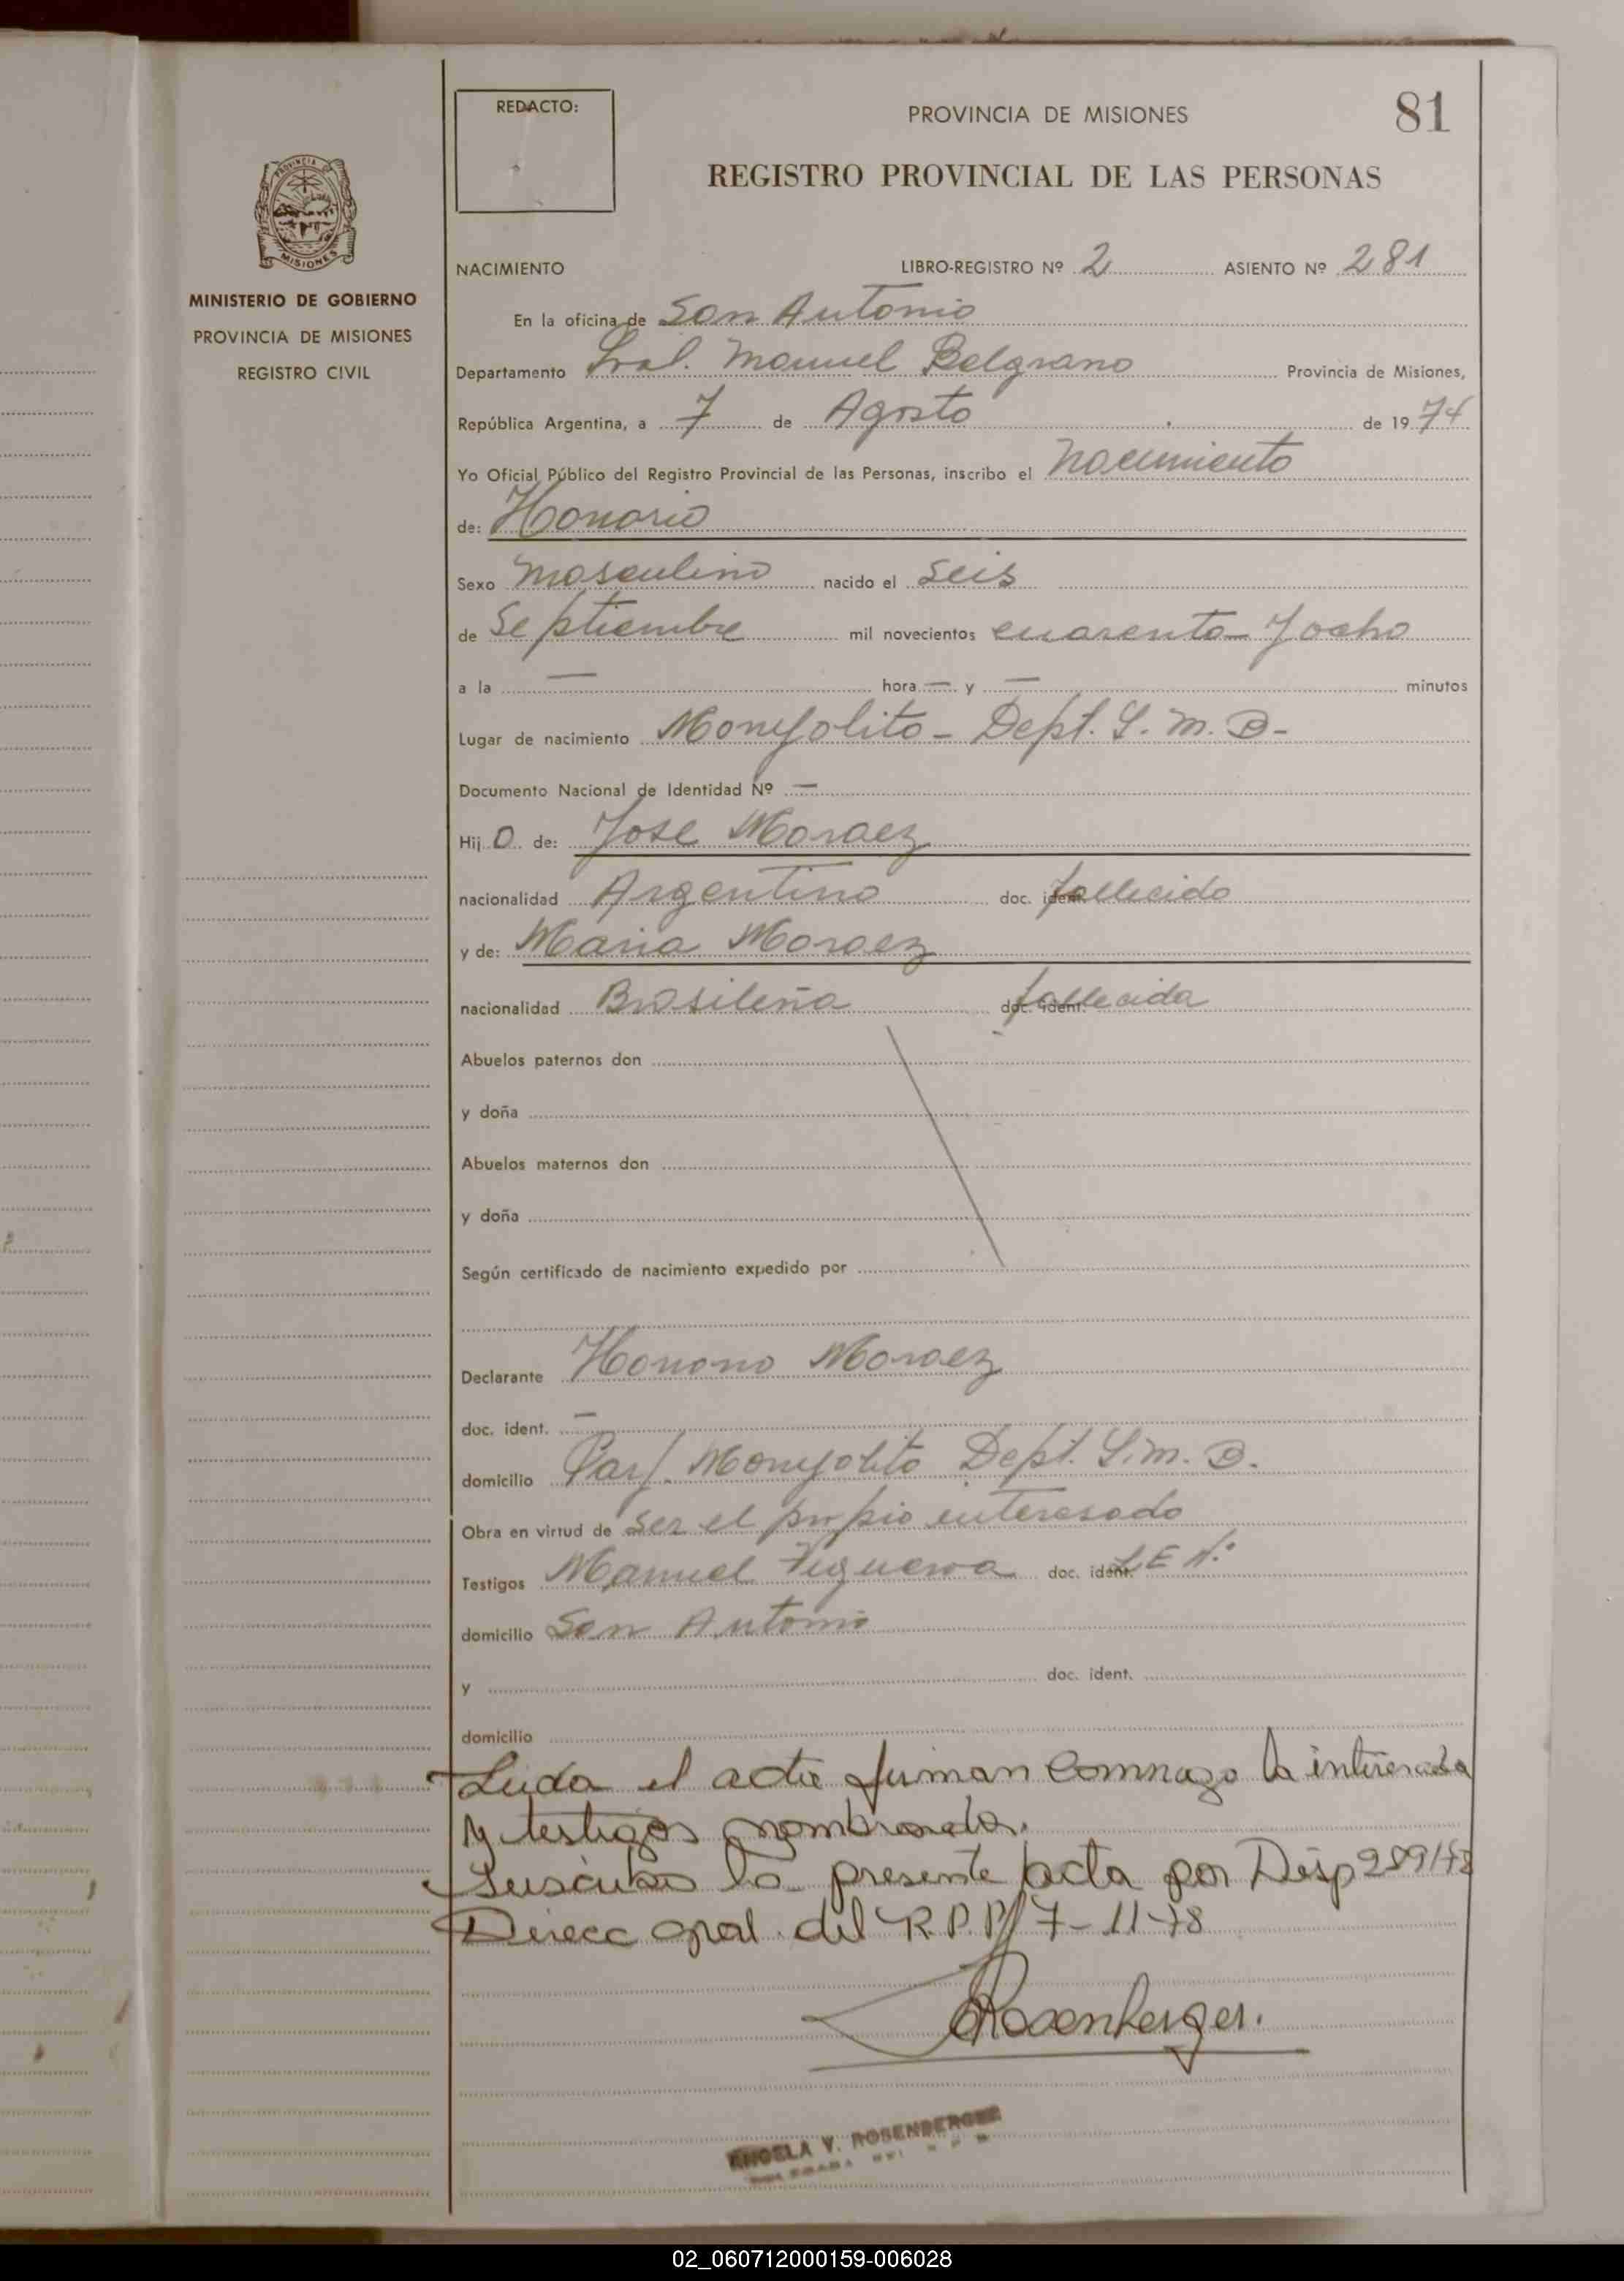 REDACTO:
PROVINCIA DE MISIONES
81
REGISTRO PROVINCIAL DE LAS PERSONAS
PROVINCIA
MISIONES
MINISTERIO DE GOBIERNO
PROVINCIA DE MISIONES
REGISTRO CIVIL
NACIMIENTO LIBRO-REGISTRO Nº 2 ASIENTO Nº 281
En la oficina de San Antonio
Departamento Gral. Manuel Belgrano Provincia de Misiones,
República Argentina, a 7 de Agosto de 1974
Yo Oficial Público del Registro Provincial de las Personas, inscribo el nacimiento
de: Honorio
Sexo masculino nacido el seis
de Septiembre mil novecientos cuarenta y ocho
a la — hora — y — minutos
Lugar de nacimiento Monyolito - Dept. G. M. B-
Documento Nacional de Identidad Nº —
Hijo de: Jose Moraez
nacionalidad Argentino doc. ident. fallecido
y de: Maria Moraez
nacionalidad Brasileña doc. ident. fallecida
Abuelos paternos don
y doña
Abuelos maternos don
y doña
Según certificado de nacimiento expedido por
Declarante Honorio Moraez
doc. ident. —
domicilio Monyolito Dept. G. M. B.
Obra en virtud de ser el propio interesado
Testigos Manuel Figueroa doc. ident. L E Nº
domicilio San Antonio
y doc. ident.
domicilio
Leida el acta firman conmigo la interesada
y testigos nombrados.
la presente acta por Disp
Direcc gral. del R.P.P. 7-11-78
Rosenberger.
ANGELA V. ROSENBERGER
02_060712000159-006028